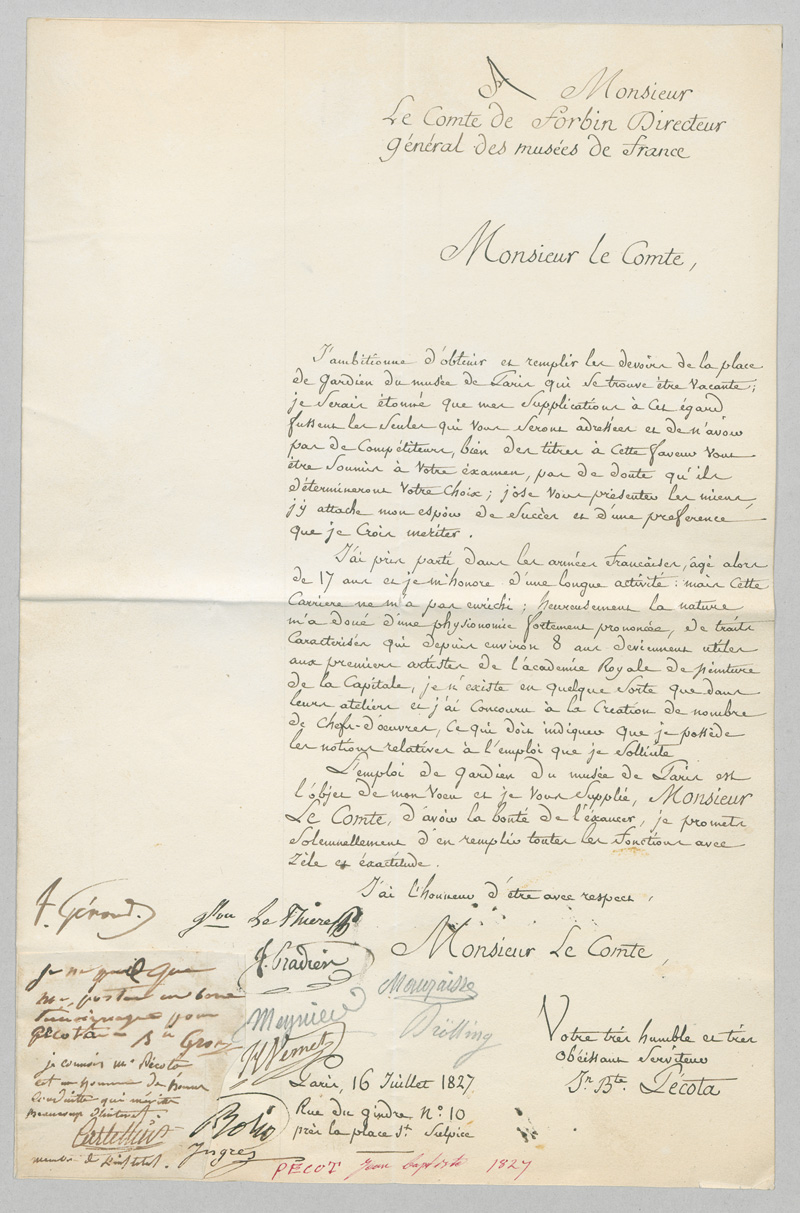 A Monsieur
Le Comte de Forbin Directeur
général des musées de France
Monsieur le Comte,
J'ambitionne d'obtenir et remplir les devoirs de la place
de gardien du musée de Paris qui se trouve être vacante;
je serais étonné que mes supplications à cet égard
fussent les seules qui vous seront adressées et de n'avoir
pas de Compétiteurs, bien des titres à Cette faveur vont
être soumis à Votre éxamen, pas de doute qu'ils
détermineront Votre choix; j'ose vous présenter les miens,
j'y attache mon espoir de succès et d'une preference
que je Crois meriter.
J'ai pris parti dans les armées françaises, agé alors
de 17 ans et je m'honore d'une longue activité: mais Cette
Carriere ne m'a pas enrichi; heureusement la nature
m'a doué d'une physionomie fortement prononcée, de traits
Caractérisés qui depuis environ 8 ans deviennent utiles
aux premiers artistes de l'académie Royale de peinture
de la Capitale, je n'existe en quelque sorte que dans
leurs ateliers et j'ai Concouru à la Création de nombre
de Chefs-d'oeuvres, Ce qui doit indiquer que je possède
les notions relatives à l'emploi que je sollicite
L'emploi de gardien du musée de Paris est
l'objet de mon Voeu et je Vous Supplie, Monsieur
Le Comte, d'avoir la bonté de l'éxaucer, je promets
solemnellement d'en remplir toutes les fonctions avec
Zèle et éxactitude.
J'ai l'honneur d'être avec respect,
Monsieur Le Comte,
Votre très humble et très
obéissant Serviteur
Jn. Bte. Pécota
F. Gérard.
gllon Le Thiere
J. Pradier
Mauzaisse
Meynier
Drölling
H Vernet
je ne puis que
me porter un bon
témoignage pour
pécota Bn Gros
je connois mr Pécota
est un homme de honneur
Conduite qui mérite
beaucoup d'intérêt.
Cartellier
membre de l'institut.
Bosio
Ingres
Paris, 16 Juillet 1827
Rue du gindre N° 10
près la place St. Sulpice
PECOT Jean baptiste 1827